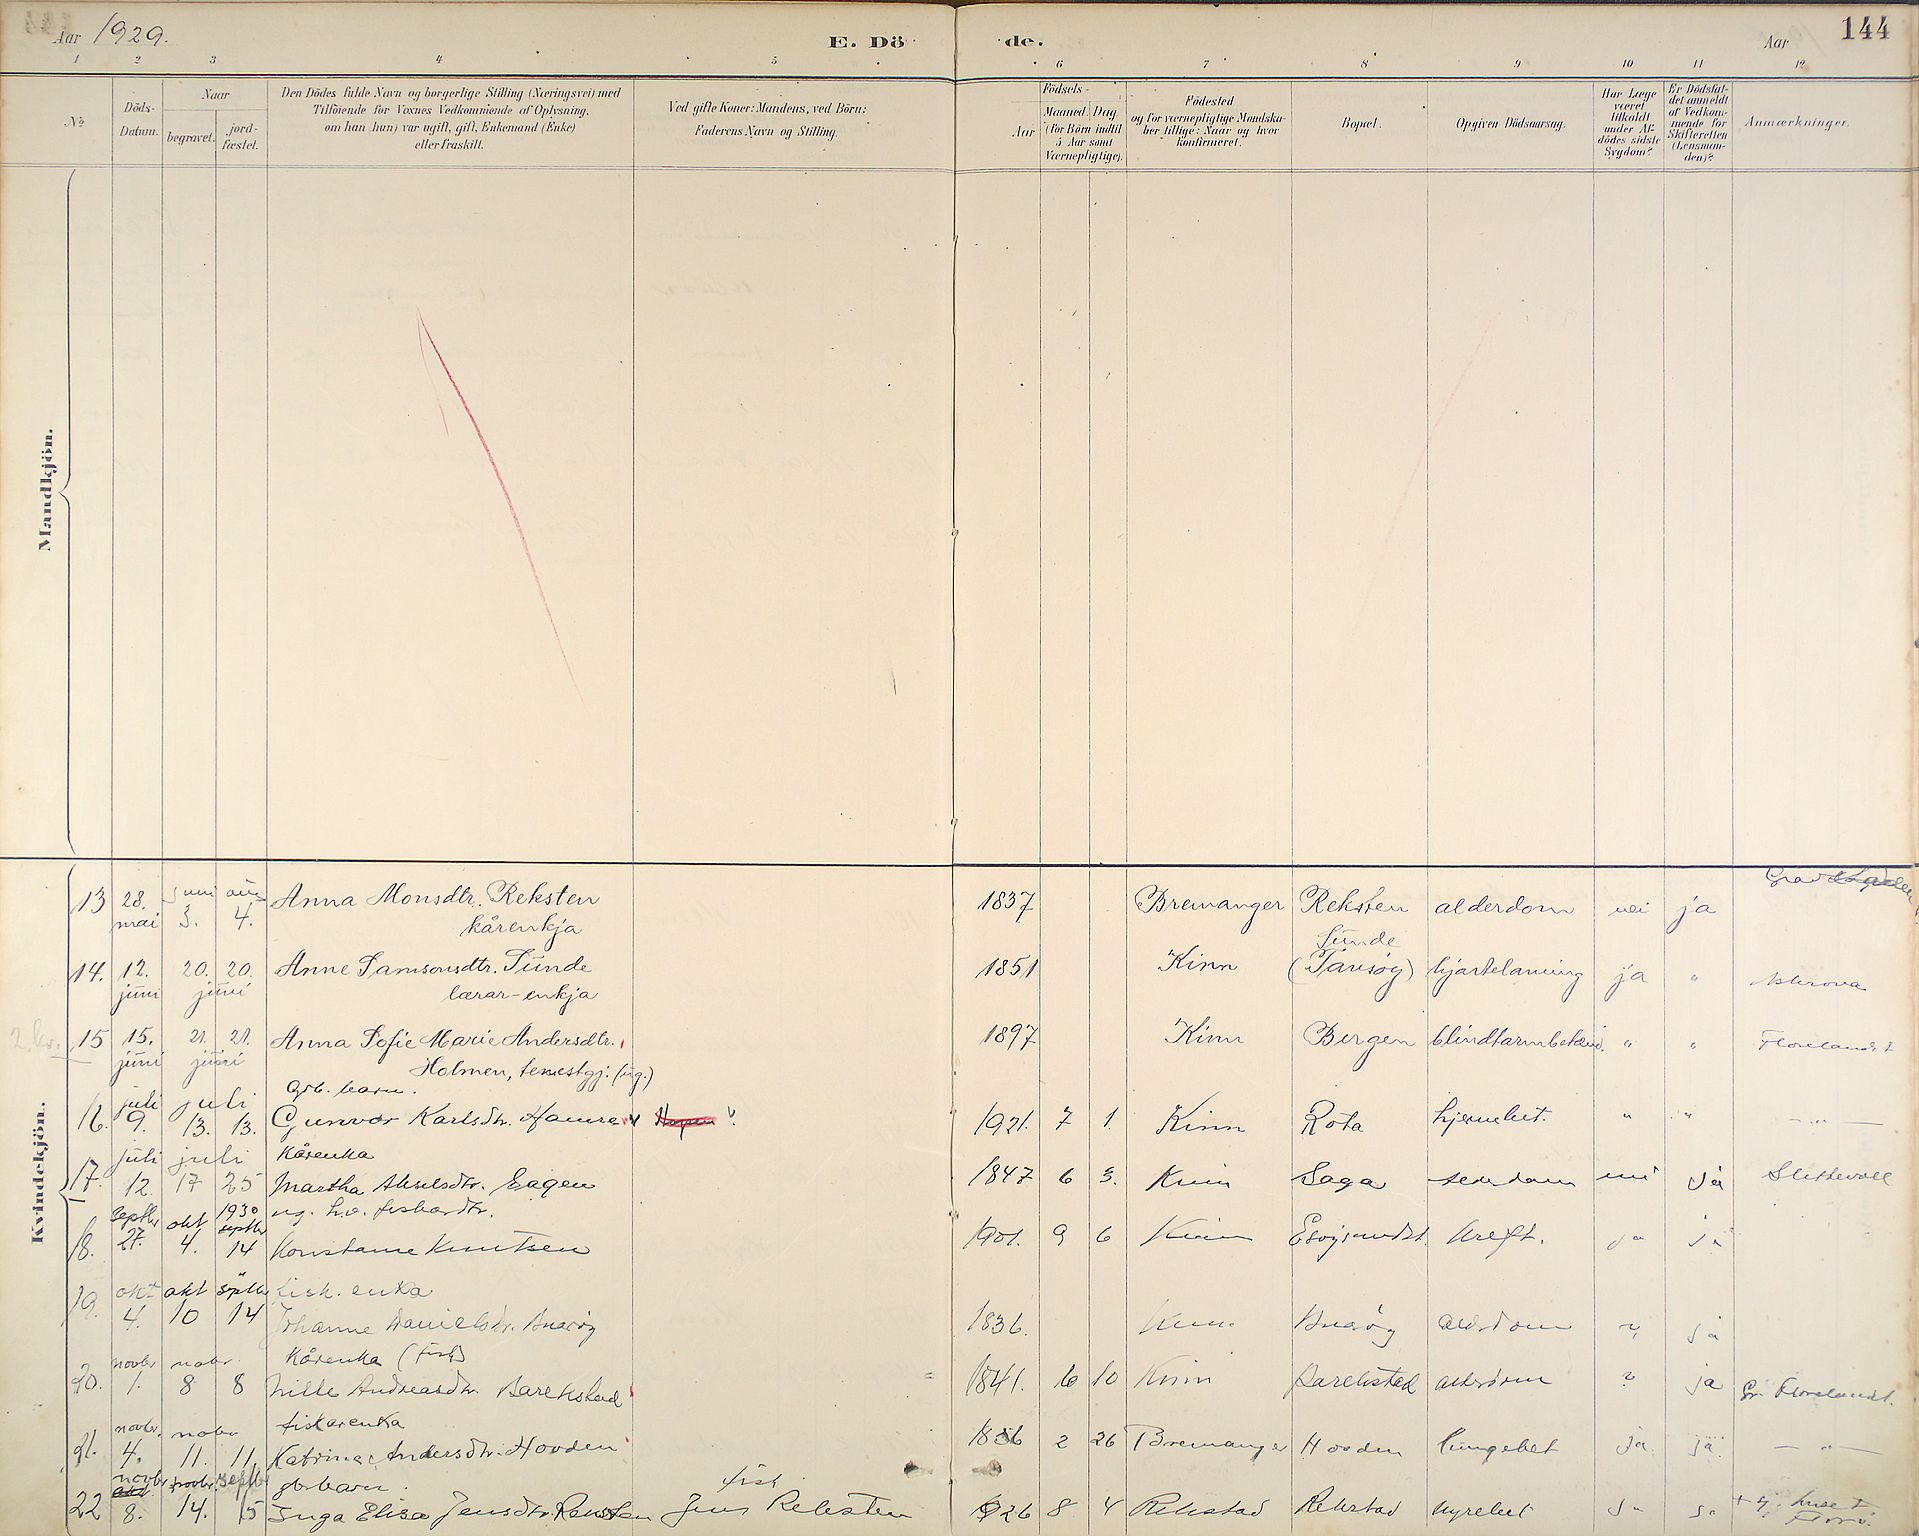 Aar 1929. E. Dö de. Aar 144
1 2 3 4 5 6 7 8 9 10 11 12
№
Döds-
Datum.
Naar
begravet. jord-
fæstet.
Den Dödes fulde Navn og borgerlige Stilling (Næringsvei) med
Tilföiende for Voxnes Vedkommende af Oplysning.
om han (hun) var ugift, gift, Enkemand (Enke)
eller fraskilt.
Ved gifte Koner: Mandens, ved Börn:
Faderens Navn og Stilling.
Födsels-
Aar
Maaned. Dag
(for Börn indtil
5 Aar samt
Værnepligtige).
Födested
og for værnepligtige Mandska-
ber tillige: Naar og hvor
konfirmeret.
Bopæl.
Opgiven Dödsaarsag.
Har Læge
været
tilkaldt
under Af-
dödes sidste
Sygdom?
Er Dödsfal-
det anmeldt
af Vedkom-
mende for
Skifteretten
(Lensman-
den)?
Anmærkninger.
Mandkjön.
Kvindekjön.
13 28. juni aug Anna Monsdtr. Reksten 1837 Bremanger Reksten alderdom nei ja
mai 3. 4. kårenkja
Sunde
14. 12. 20. 20. Anne Samsonsdtr. Sunde 1851 Kinn (Tansøy) hjartelaming ja "
juni juni lærar-enkja
15 15. 21. 21. Anna Sofie Marie Andersdtr. 1897 Kinn Bergen " " Florelandet
juni juni Holmen, (ug.)
juli juli grb. barn.
16. 9. 13. 13. Gunvor Karlsdtr. 1921. 7 1. Kinn Rota hjernebet. " " — " —
juli juli Kårenka
17. 12. 17 25 Martha 1847 6 3. Kinn ja
septbr okt 1930 septbr ug.
18. 27. 4. 14 Konstanse Knutsen 1901. 9 6 Kinn kreft. ja ja
okt okt septbr fisk. enka
19. 4. 10 14 Johanne Danielsdtr. 1836. Kinn ja
novbr novbr. Kårenka (fisk)
20. 1. 8 8 Nille Andreasdtr. Barekstad 1841. 6 10 Kinn Barekstad ? ja Florelandet.
novbr. novbr fiskarenka
21. 4. 11. 11. Katrine Andersdtr. Hovden 2 26 Bremanger Hovden lungebet ja ja — " —
novbr novbr. septbr gbr barn. fisk
22 8. 14. 15 Inga Elisa Jensdtr. Reksten Jens Reksten 1926 8 4 Rekstad Rekstad nyrebet ja ja